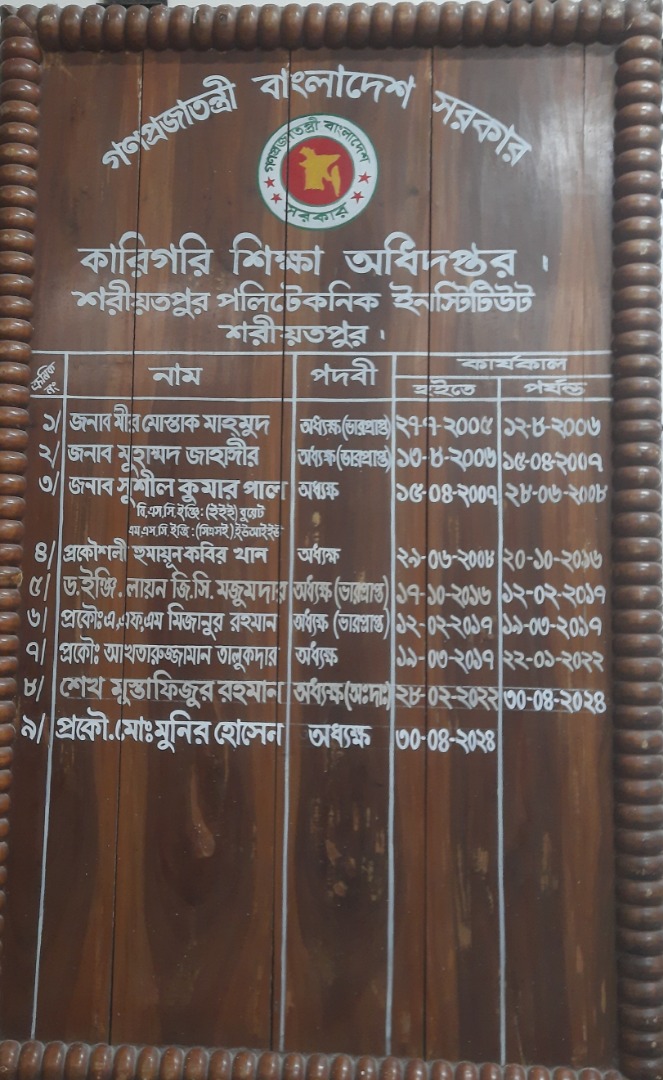 গণপ্রজাতন্ত্রী বাংলাদেশ সরকার
গণপ্রজাতন্ত্রী বাংলাদেশ
সরকার
কারিগরি শিক্ষা অধিদপ্তর ।
শরীয়তপুর পলিটেকনিক ইনস্টিটিউট
শরীয়তপুর ।
ক্রমিক নং নাম পদবী কার্যকাল
হইতে পর্যন্ত
১/ জনাব মীর মোস্তাক মাহমুদ অধ্যক্ষ (ভারপ্রাপ্ত) ২৭-৭-২০০৫ ১২-৮-২০০৬
২/ জনাব মুহাম্মদ জাহাঙ্গীর অধ্যক্ষ (ভারপ্রাপ্ত) ১৩-৮-২০০৬ ১৫-০৪-২০০৭
৩/ জনাব সুশীল কুমার পাল অধ্যক্ষ ১৫-০৪-২০০৭ ২৮-০৬-২০০৮
বি,এস,সি,ইঞ্জি: (ইইই) বুয়েট
এম,এস,সি,ইঞ্জি: (সিএসই),ইউআইইউ
৪/ প্রকৌশলী হুমায়ূন কবির খান অধ্যক্ষ ২৯-০৬-২০০৮ ২০-১০-২০১৬
৫/ ড.ইঞ্জি. লায়ন জি.সি. মজুমদার অধ্যক্ষ (ভারপ্রাপ্ত) ১৭-১০-২০১৬ ১২-০২-২০১৭
৬/ প্রকৌঃএ,এফ,এম মিজানুর রহমান অধ্যক্ষ (ভারপ্রাপ্ত) ১২-০২-২০১৭ ১৯-০৩-২০১৭
৭/ প্রকৌঃ আখতারুজ্জামান তালুকদার অধ্যক্ষ ১৯-০৩-২০১৭ ২২-০১-২০২২
৮/ শেখ মুস্তাফিজুর রহমান অধ্যক্ষ(অঃদাঃ) ২৮-০২-২০২২ ৩০-০৪-২০২৪
৯/ প্রকৌ.মোঃমুনির হোসেন অধ্যক্ষ ৩০-০৪-২০২৪